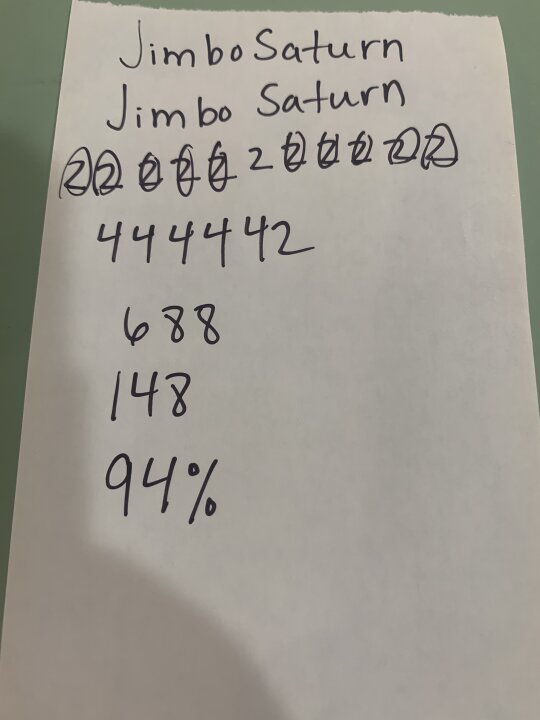 Jimbo Saturn
Jimbo Saturn
2 2 2 2 2 2 2 2 2 2 2
444442
688
148
94%